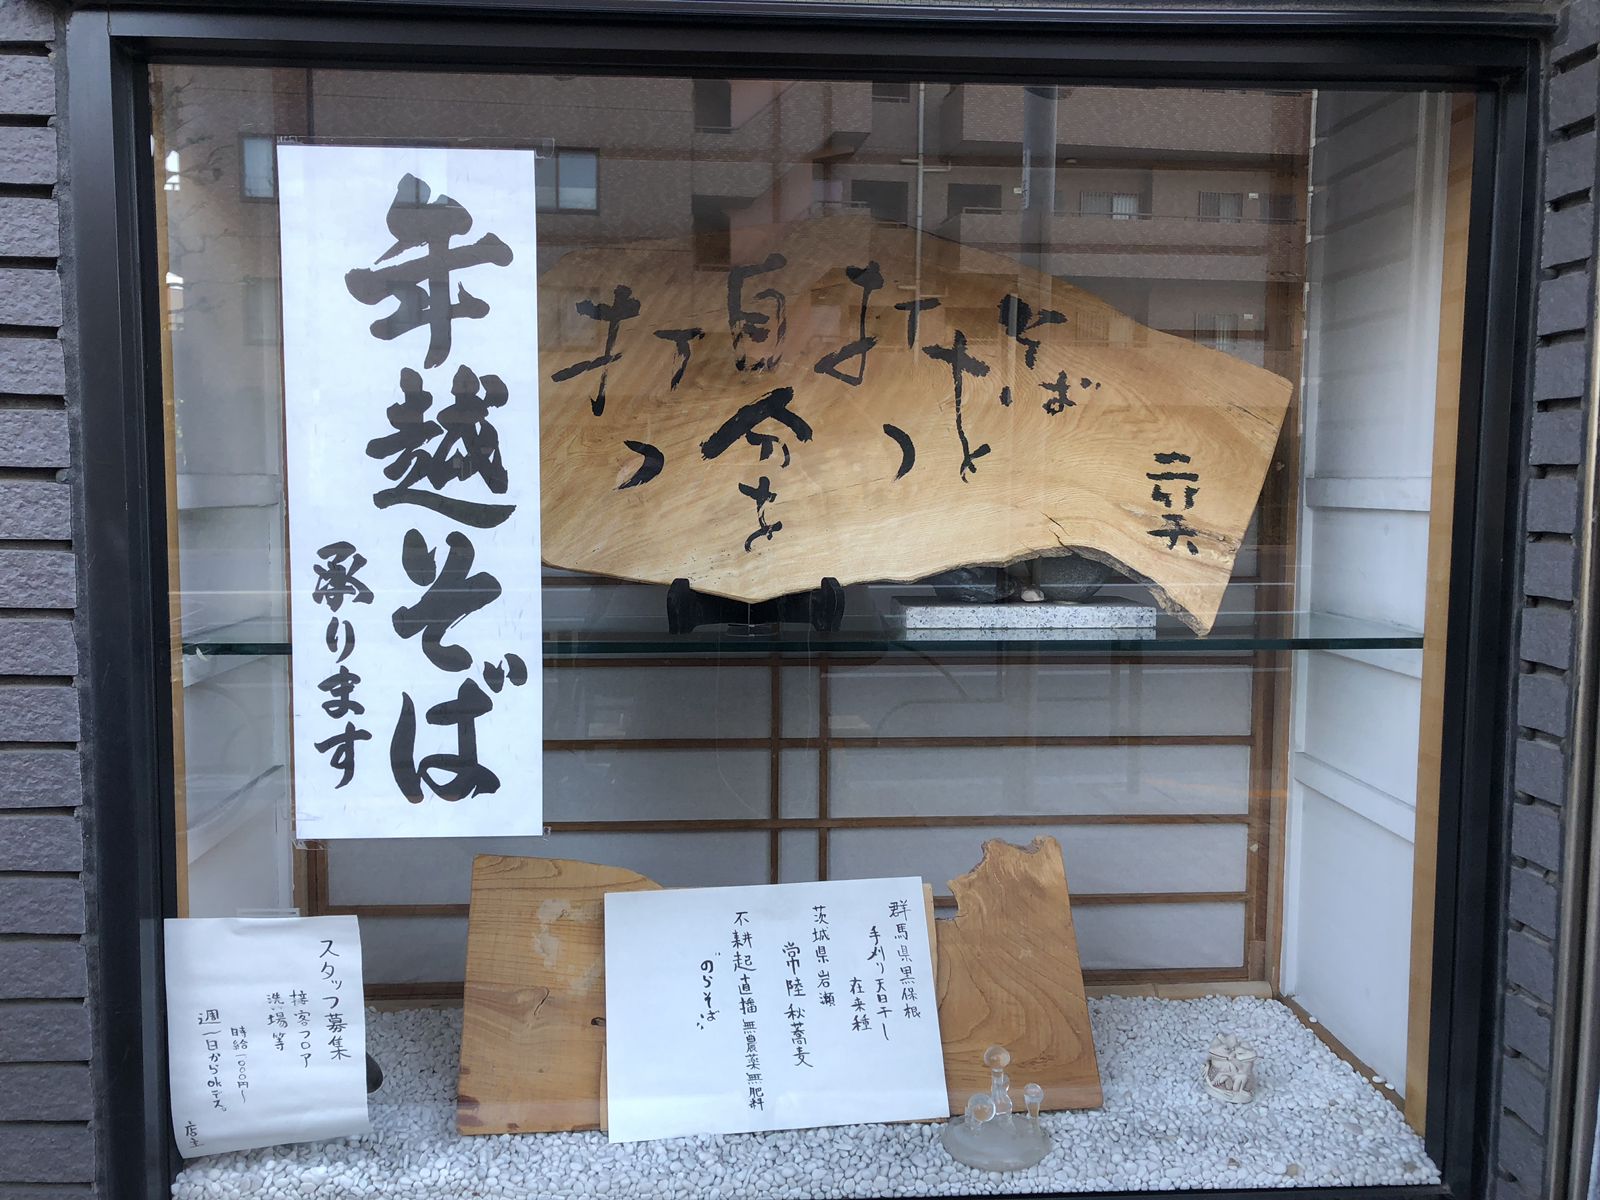 年越そば
承ります
そば
打やと
打つ
自分を
打つ
スタッフ募集
接客フロア
洗い場等
時給一〇〇〇円〜
週一日からokデス。
店主
群馬県黒保根
手刈り天日干し
在来種
茨城県岩瀬
常陸秋蕎麦
不耕起直播無農薬無肥料
のらそば